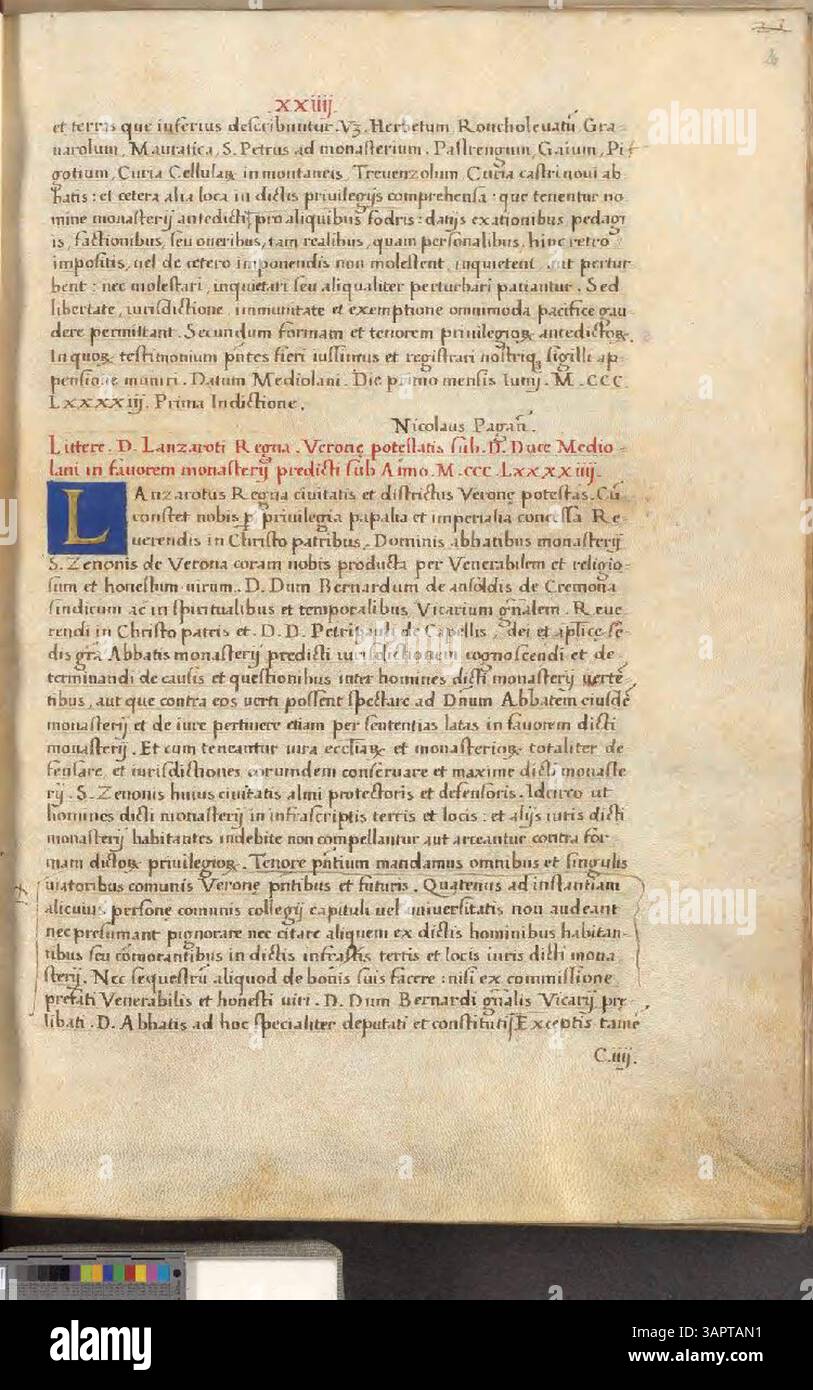 .xxiiij.
et terras que inferius describuntur. Vʒ. Herbetum, Roncholeuatū Gra-
narolum, Mauratica, S. Petrus ad monasterium. Pastrengum, Gaium, Pi-
gotium, Curia Cellulaꝝ in montaneis, Treuenzolum, Curia castri noui ab-
batis: et cetera alia loca in dictis priuilegijs comprehensa: que tenentur no
mine monasterij antedicti, pro aliquibus fodris: datijs exationibus pedagi
is, factionibus, seu oneribus, tam realibus, quam personalibus, hinc retro
impositis, uel de cetero imponendis non molestent, inquietent, aut pertur
bent: nec molestari, inquietari seu aliqualiter perturbari patiantur. Sed
libertate, iurisdictione, immunitate et exemptione ommimoda pacifice gau
dere permittant. Secundum formam et tenorem priuilegioꝝ antedictoꝝ.
In quoꝝ testimonium pn̄tes fieri iussimus et registrari nostriq; sigilli ap-
pensione muniri. Datum Mediolani. Die primo mensis Iunij. M. CCC.
Lxxxxiij. Prima Indictione.
Nicolaus Pagan̄.
Littere. D. Lanzaroti Regna. Veronę potestatis sub. D. Duce Medio-
lani in fauorem monasterij predicti sub Anno. M. ccc. Lxxxxiiij.
LAnzarotus Regna ciuitatis et districtus Veronę potestas. Cū
constet nobis ꝑ priuilegia papalia et imperialia concessa Re-
uerendis in Christo patribus, Dominis abbatibus monasterij
S. Zenonis de Verona coram nobis producta per Venerabilem et religio-
sum et honestum uirum. D. Dum Bernardum de ansoldis de Cremona
sindicum ac in spiritualibus et temporalibus Vicarium gn̄alem. Reue
rendi in Christo patris et. D. D. Petripauli de Capellis, dei et aplice se-
dis grā Abbatis monasterij predicti iurisdictionem cognoscendi et de-
terminandi de causis et questionibus inter homines dicti monasterij uertē
tibus, aut que contra eos uerti possent spectare ad Dn̄um Abbatem eiusdē
monasterij et de iure pertinere etiam per sententias latas in fauorem dicti
monasterij. Et cum teneantur iura eccl̄iaꝝ et monasterioꝝ totaliter de
fensare, et iurisdictiones eorumdem conseruare et maxime dicti monaste
rij. S. Zenonis huius ciuitatis almi protectoris et defensoris. Idcirco ut
homines dicti monasterij in infrascriptis terris et locis: et alijs iuris dicti
monasterij habitantes indebite non compellantur aut arceantur contra for
mam dictoꝝ priuilegioꝝ. Tenore pn̄tium mandamus omnibus et singulis
uiatoribus comunis Veronę pn̄tibus et futuris. Quatenus ad instantiam
alicuius persone comunis collegij capituli uel uniuersitatis non audeant
nec presumant pignorare nec citare aliquem ex dictis hominibus habitan-
tibus seu comorantibus in dictis infrastis terris et locis iuris dicti mona
sterij. Nec sequestrū aliquod de bonis suis facere: nisi ex commissione
prefati Venerabilis et honesti uiri. D. Dum Bernardi gn̄alis Vicarij pre-
libati. D. Abbatis ad hoc specialiter deputati et constituti, Exceptis tamē
C. iiij.
alamy
Image ID: 3APTAN1
www.alamy.com